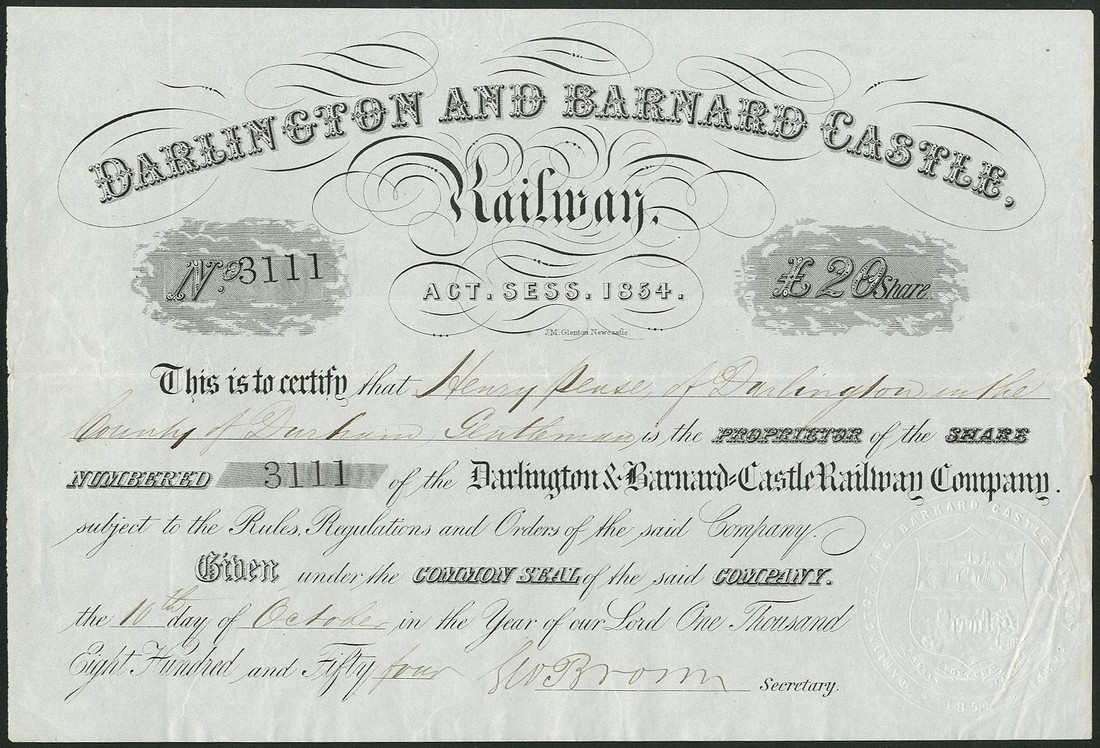 DARLINGTON AND BARNARD CASTLE,
Railway.
No. 3111
£20 Share.
ACT. SESS. 1854.
J.M. Glenton Newcastle
This is to certify that Henry Pease of Darlington in the
County of Durham Gentleman is the PROPRIETOR of the SHARE
NUMBERED 3111 of the Darlington & Barnard=Castle Railway Company.
subject to the Rules, Regulations and Orders of the said Company.
Given under the COMMON SEAL of the said COMPANY.
the 10th day of October in the Year of our Lord One Thousand
Eight Hundred and Fifty four Geo Brown Secretary.
DARLINGTON AND BARNARD CASTLE
1854